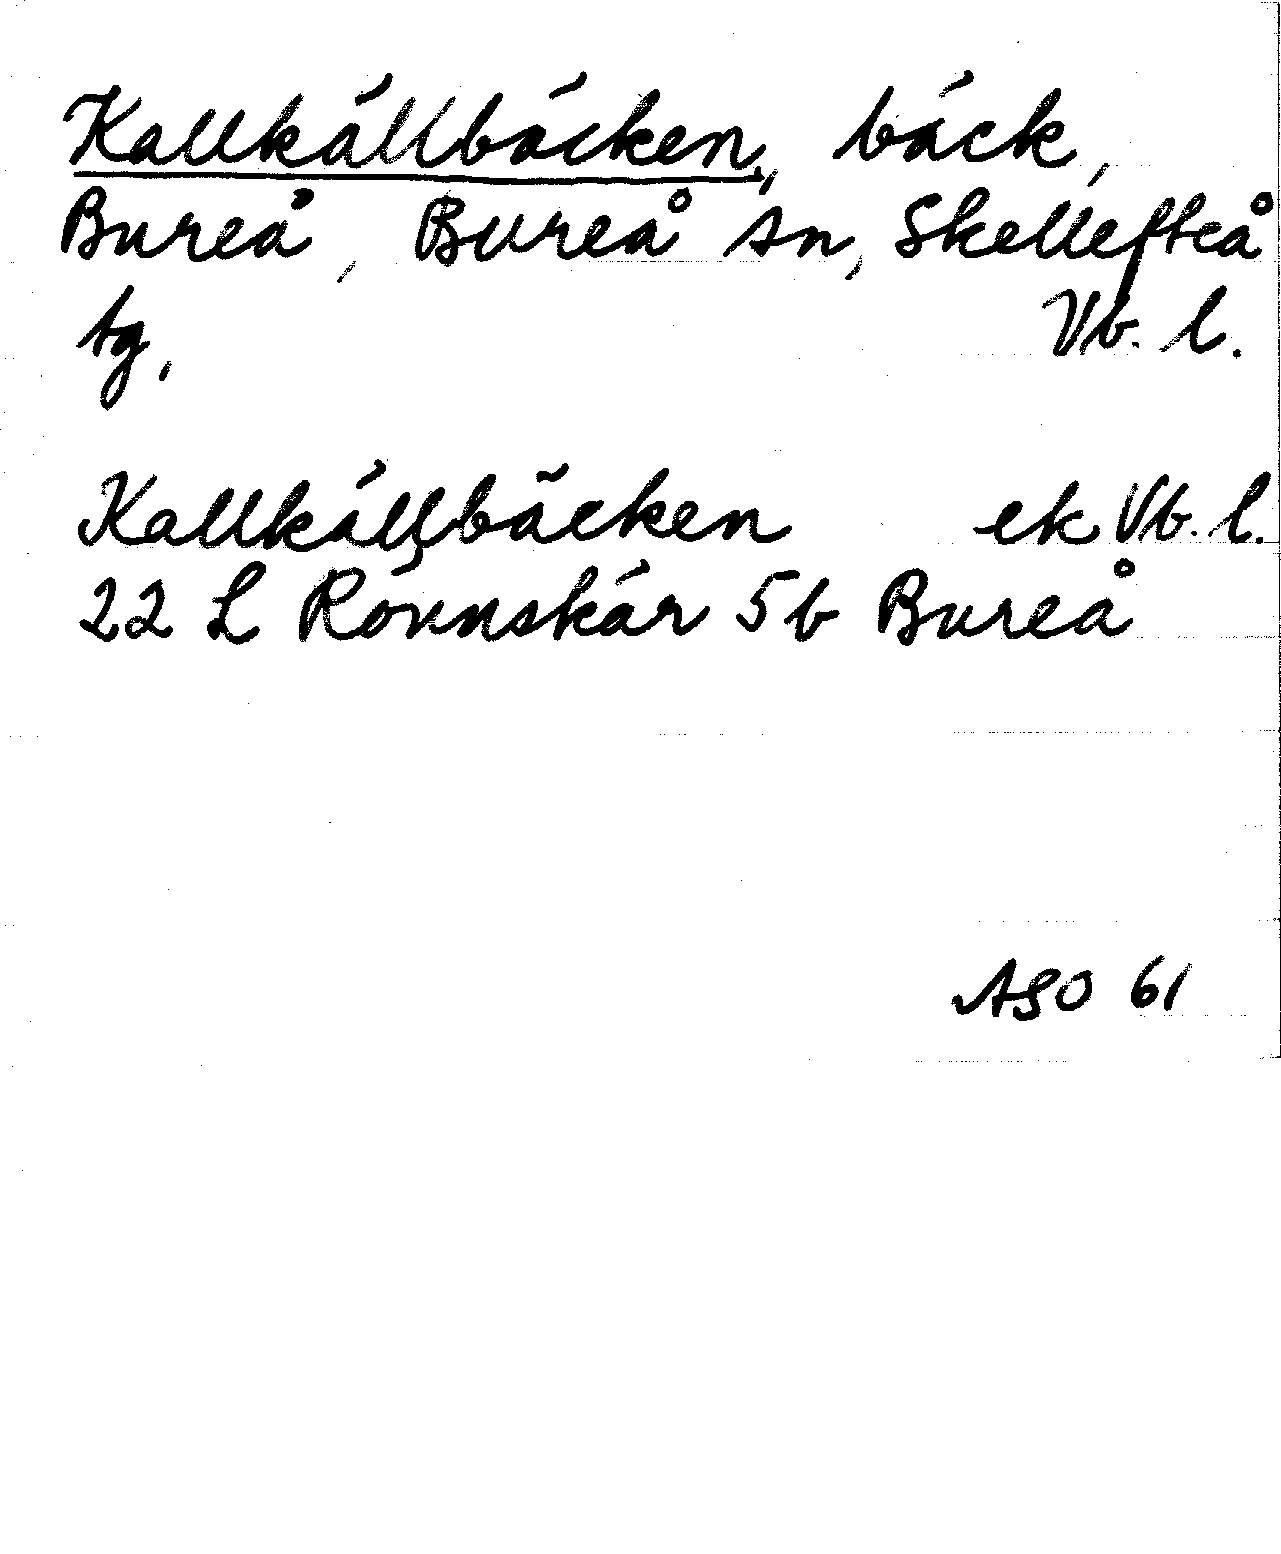 Kallkällbäcken, bäck,
Bureå, Bureå sn, Skellefteå
tg, Vb. l.
Kallkällbäcken ek Vb. l.
22 L Rönnskär 5b Bureå
ASO 61